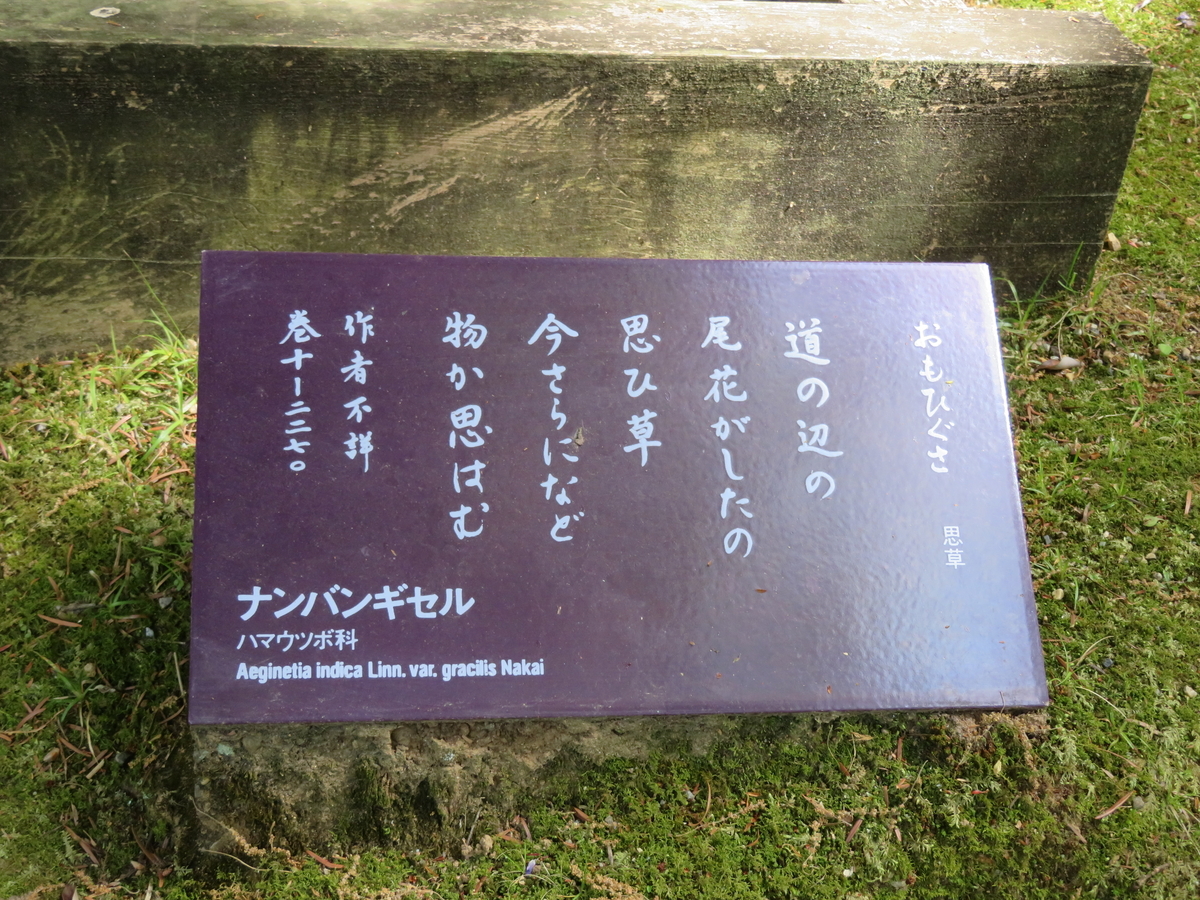 おもひぐさ
思草
道の辺の
尾花がしたの
思ひ草
今さらになど
物か思はむ
作者不詳
巻十ー二二七〇
ナンバンギセル
ハマウツボ科
Aeginetia indica Linn. var. gracilis Nakai